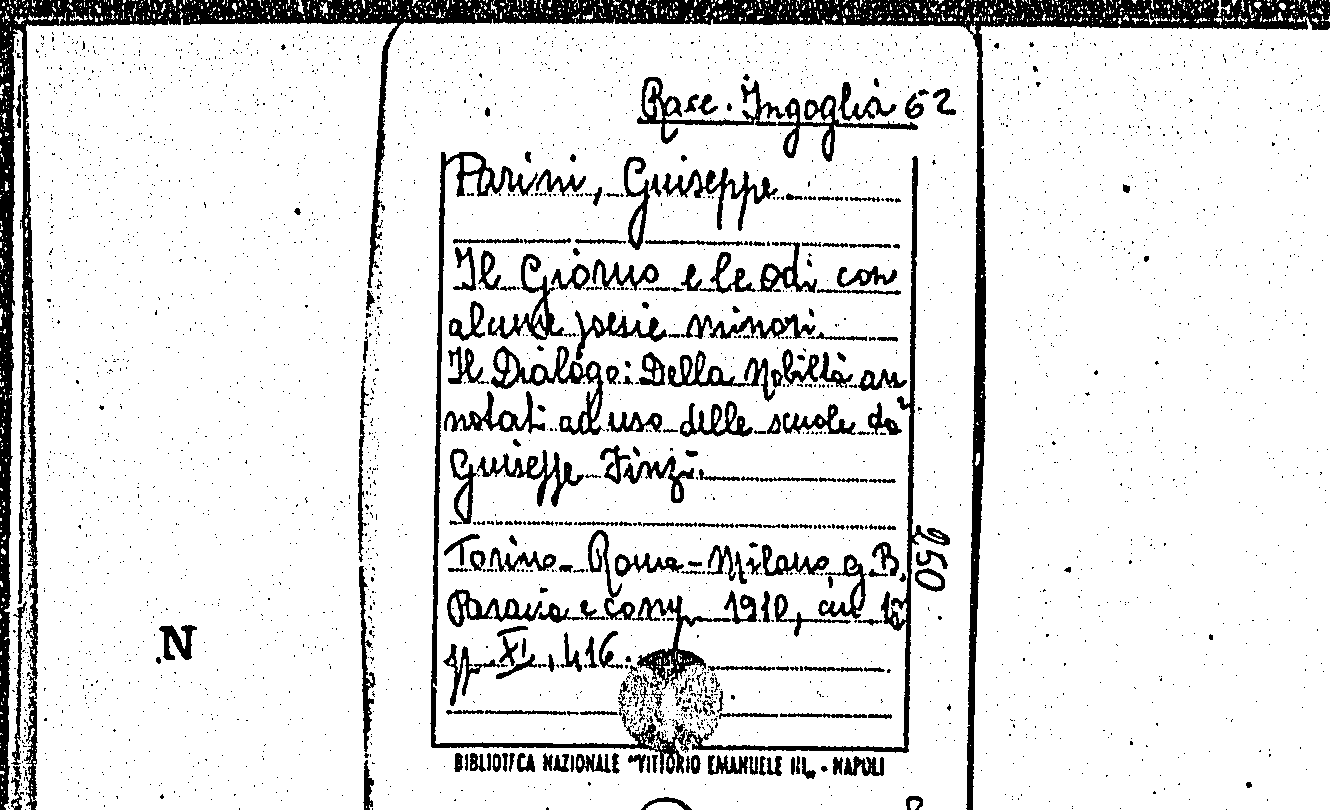 Racc. Ingoglia 62
Parini, Giuseppe
Il Giorno e le odi con
alcune poesie minori.
Il Dialogo: Della Nobiltà an
notati ad uso delle scuole da
Giuseppe Finzi.
Torino - Roma - Milano, G. B.
Paravia e comp. 1910, in 12°
pp. XI, 416.
250
N
BIBLIOTECA NAZIONALE "VITTORIO EMANUELE III„ - NAPOLI